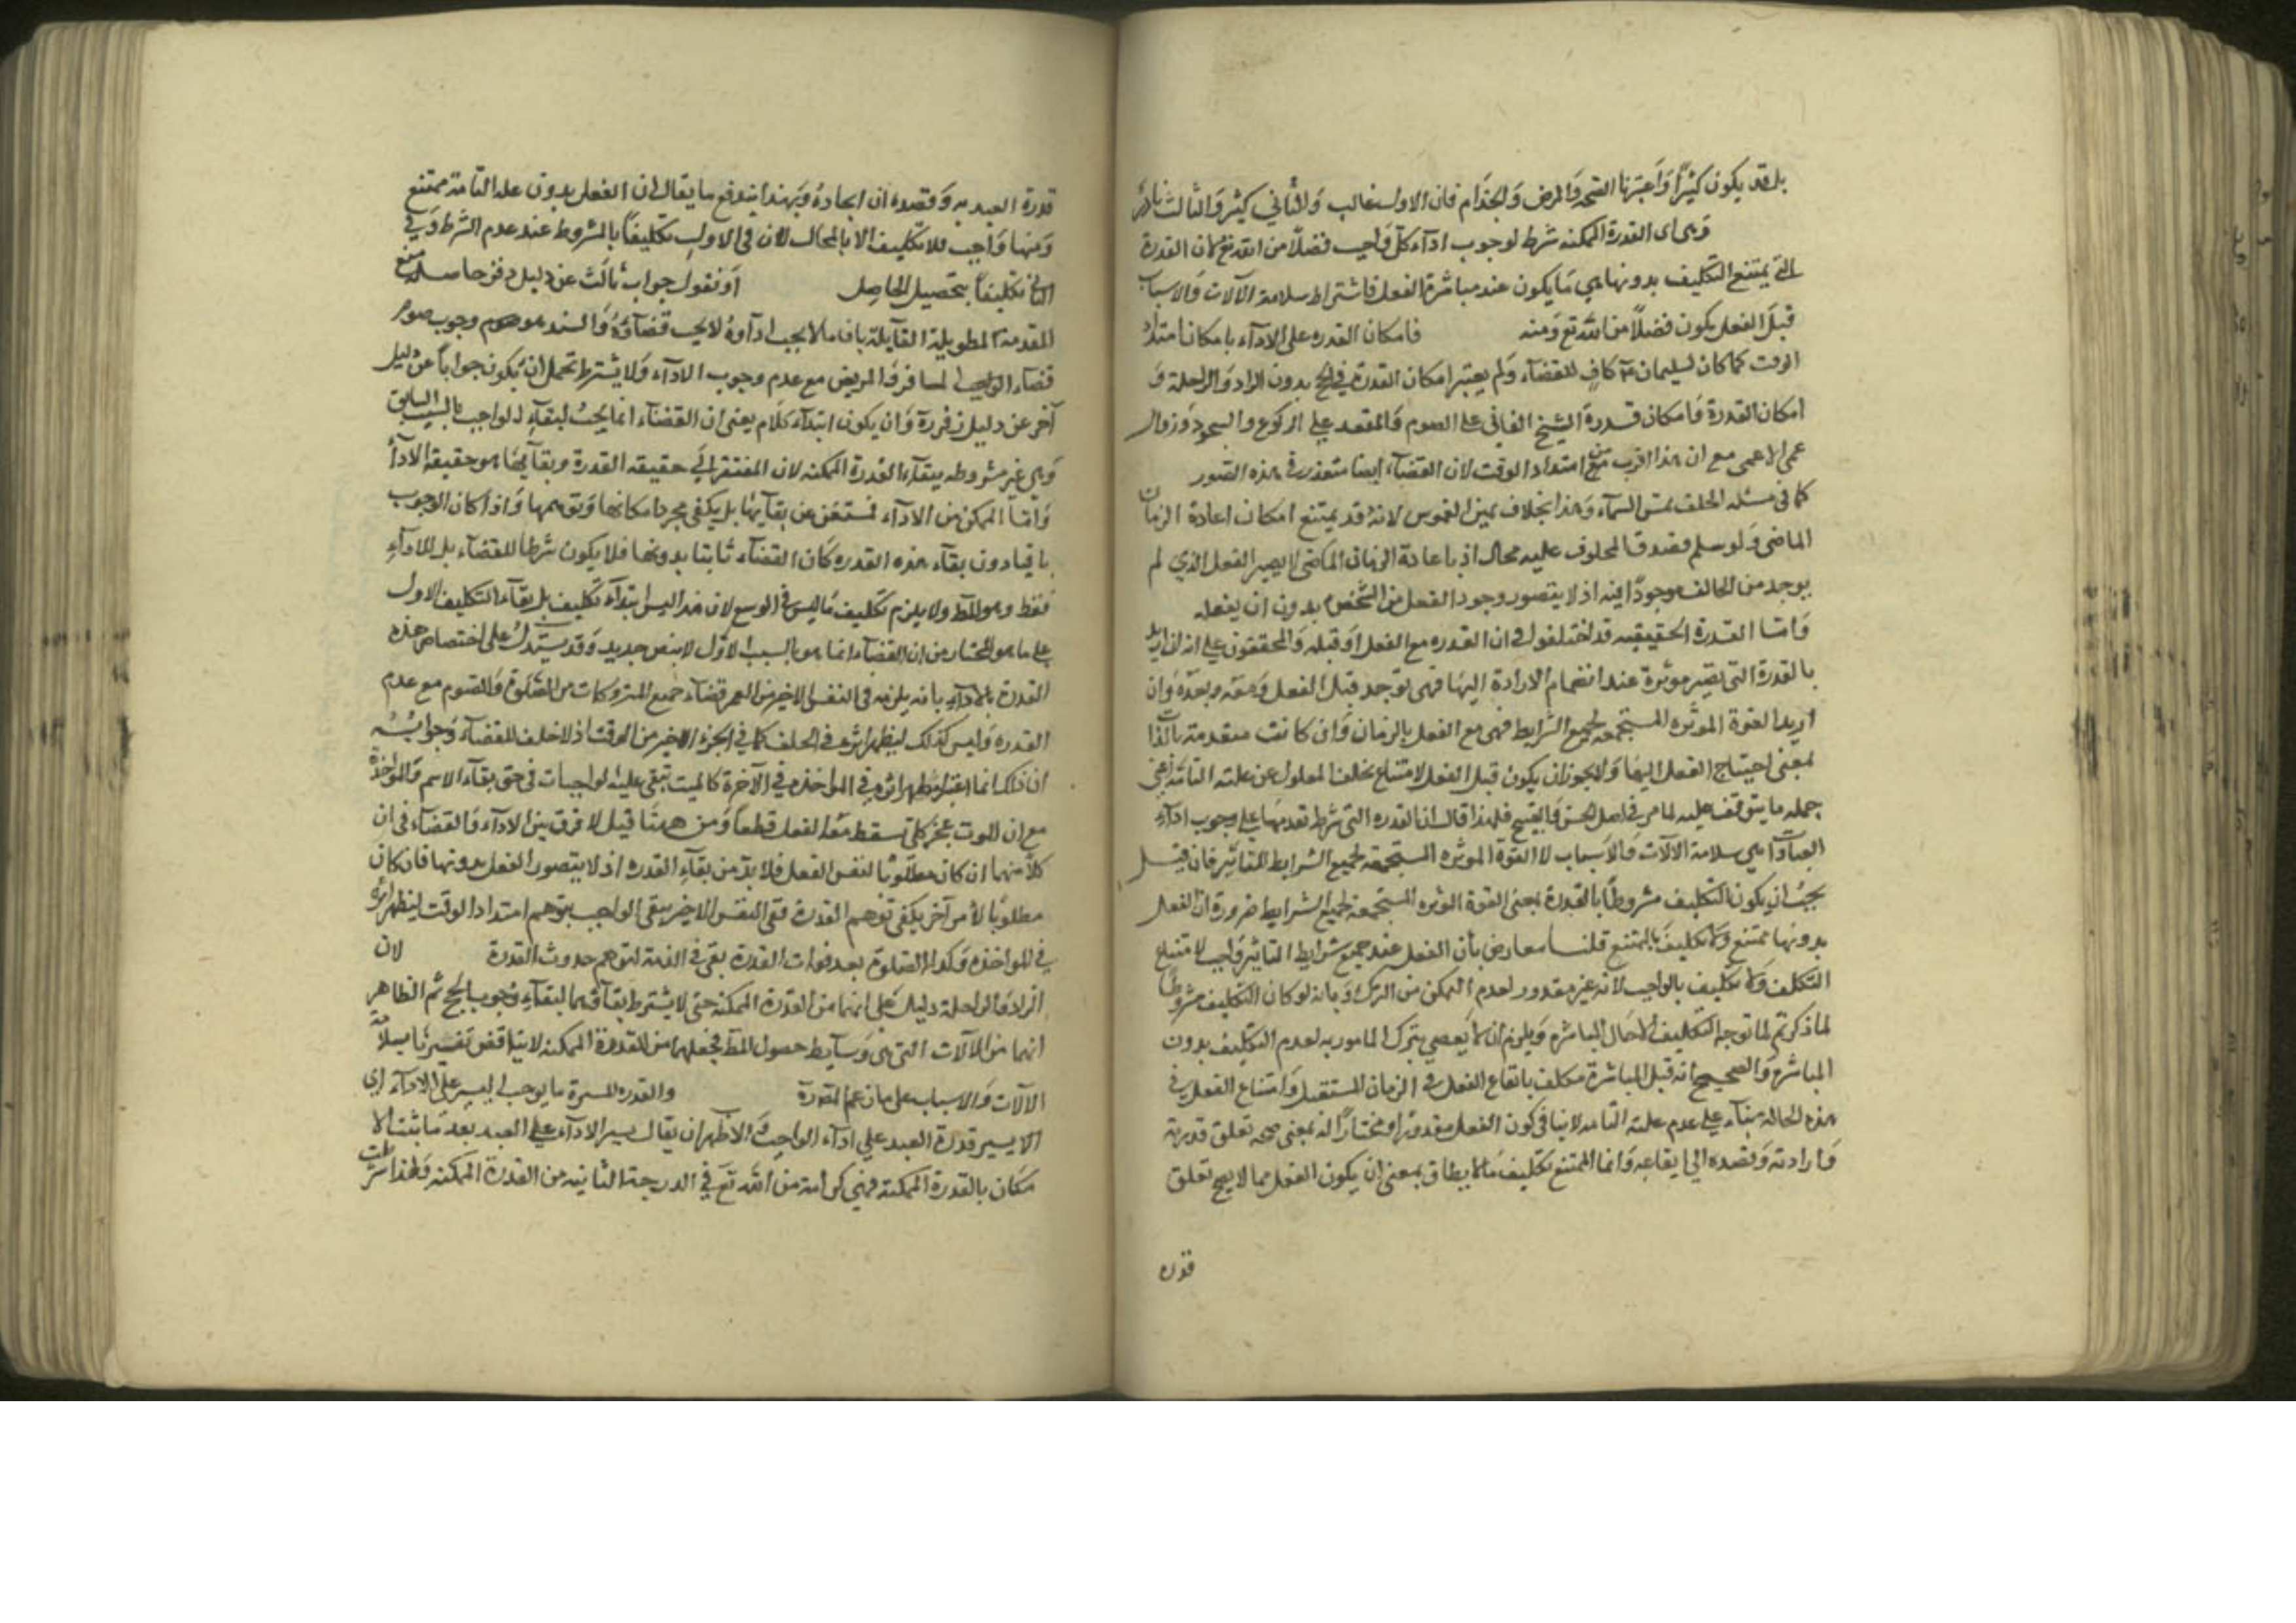 بل قد يكون كثيرًا وَاعتبرنا الصحة وَالمرض وَالجذام فان الاول غالب وَالثاني كثير وَالثالث نادر
وَهى اى القدرة الممكنه شرط لوجوب ادآء كل وَاجب فضلاً من الله تع لان القدرة
التى يمتنع التكليف بدونها هي مَا يكون عند مباشرة الفعل فاشتراط سلامة الآلات وَالاسباب
قبل الفعل يكون فضلاً من الله تع وَمنه فامكان القدره على الادآء بامكان امتداد
الوقت كما كان لسليمان كافٍ للقضآء وَلم يعتبر امكان القدرة في الحج بدون الزاد وَالراحلة وَ
امكان القدرة وَامكان قدرة الشيخ الفانى على الصوم وَالمقعد على الركوع والسجود وَزوال
عمى الاعمى مع ان هذا اقرب من امتداد الوقت لان القضآء ايضا متعذر في هذه الصور
كما فى مسئله الحلف بمس السمآء وَهذا بخلاف يمين الغموس لانهُ قد يمتنع امكان اعادة الزمان
الماضى وَلو سلم فصدق المحلوف عليه محال اذ باعادة الزمان الماضى لا يصير الفعل الذي لم
يوجد من الحالف موجودًا فيه اذ لا يتصور وجود الفعل من الشخص بدون ان يفعله
وَامّا القدرة الحقيقيه قد اختلفوا فى ان القدره مع الفعل اَو قبله وَالمحققون على انه ان اريد
بالقدرة التى تصير موثرة عند انضمام الارادة اليهَا فهى توجد قبل الفعل وَمعه وبعدهُ وَان
اريد القوة الموثره المستجمعه لجميع الشرايط فهى مع الفعل بالزمان وَان كانت متقدمة بالذات
بمعنى احتياج الفعل اليهَا وَلا يجوز ان يكون قبل الفعل لامتناع تخلف المعلول عن علته التامّة اعنى
جمله ما يتوقف عليه لما مر فى اصل الحسن وَالقبيح فلهذا قال ان القدره التى شرط تقدمهَا على وجوب ادآء
العبادَات هي سلامة الالآت وَالاَسباب لا القوة الموثره المستجمعة لجميع الشرايط التاثير فان قيل
يجبُ ان يكون التكليف مشروطًا بالقدرة بمعنى القوة الموثره المستجمعة لجميع الشرايط ضرورة ان الفعل
بدونها ممتنع وَلا تكليفَ بالممتنع قلنا معارض بأن الفعل عند جميع شرايط التاثير وَاجب لامتناع
التكلف وَلا تكليف بالواجب لانه غير مقدور لعدم التمكن من الترك وَبانه لو كان التكليف مشروطًا
لما ذكرتم لما توجه التكليف الا حَال المباشرة وَيلزم ان لا يَعصي بترك المامور به لعدم التكليف بدون
المباشرة وَالصحيح انه قبل المباشرة مكلف بايقاع الفعل في الزمان المستقبل وَامتناع الفعل في
هذه الحالة بنآء على عدم علته التامه لا ينافى كون الفعل مقدورًا وَمختارًا له بمعنى صحه تعلق قدرته
وَارادته وَقصده الى ايقاعه وَانما الممتنع تكليف مَا لا يطاق بمعنى ان يكون الفعل مما لا يصح تعلق
قدره
قدرة العبد به وَقصده ان ايجادهُ وَبهذا يندفع ما يقال ان الفعل بدون علة التامة ممتنع
وَمنها وَاجب فلا تكليف الا بالمحال لان فى الاول تكليفًا بالمشروط عند عدم الشرط وَفي
الثانى تكليفاً بتحصيل الحاصل اَو نقول جواب ثالث عن دليل زفر حاصله منع
المقدمة المطوية القآئلة بان ما لا يجب ادآؤهُ لا يجب قضآؤهُ وَالسند هو وجوب صوم
قضاء الواجب المسافر وَالمريض مع عدم وجوب الادآء وَلا يشترط تحمل ان يكون جوابا عن دليل
آخر عن دليل زفر رة وَان يكون ابتدآء كلام يعنى ان القضآء انما يجبُ لبقآءِ الواجب بالسبب السابق
وَهي غير مشروطه ببقآء القدرة الممكنه لان المفتقر الَى حقيقه القدرة وبقآئهَا هو حقيقة الادآء
وَامّا التمكن من الادآء فمستغن عن بقآئها بل يكفى مجرد امكانها وَتوهمها وَاذا كان الوجوب
باقيا دون بقآء هذه القدره كَان القضآء ثابتا بدونها فلا يكون شرطا للقضآء بل للادآءِ
فقط وهو المط ولا يلزم تكليف مَا ليس فى الوسع لان هذا ليس ابتدآء تكليف بل بقآء التكليف الاول
على ما هو المختار من ان القضآء انما هو بالسبب الاوّل لا بنص جديد وَقد يستدل على اختصاص هذه
القدرة بالادآءِ بانه يلزمه فى النفس الاخير من العمر قضآء جميع المتروكات من الصلوة وَالصوم مع عدم
القدره وَليس كذلك ليظهر اثره فى الحلف كما فى الجزء الاخير من الوقت اذ لا خلف للقضآء وَجوابهُ
ان ذلك انما اعتبر ليظهر اثره فى المواخذه في الآخرة كالميت تبقى عليه الواجبات فى حق بقآء الاسم وَالمواخذة
مع ان الموت عجز كلى سقط معه الفعل قطعاً وَمن ههنَا قيل لا فرق بين الادآء وَالقضآء فى ان
كلاً منهما ان كان مطلوبًا لنفس الفعل فلا بدّ من بقآء القدره اذ لا يتصور الفعل بدونها فان كان
مطلوبًا لامر آخر يكفى توهم القدرة ففى النفس الاخير يبقى الواجب بتوهم امتداد الوقت ليظهر اثره
في المواخذه وَكذا الصلوة بعد فوات القدرة يبقى فى الذمة لتوهم حدوث القدرة لان
الزاد وَالراحلة دليل على انهما من القدرة الممكنة حتى لا يشترط بقآؤهما لبقآءِ وُجوب الحج ثم الظاهر
انهما من الآلات التى هى وَسايط حصول المط فجعلهما من القدرة الممكنه لا يناقض تفسيرنا بسلامة
الآلات وَالاسباب على مَا زعم القدرة والقدره الميسرة ما يوجب اليسر على الادآء اى
الا يسير قدرة العبد علي ادآء الواجبِ وَ الاظهر ان يقال يسير الادآء على العبد بعد مَا ثبت الا
مكان بالقدرة الممكنة فهى كرامة من الله تعَ في الدرجة الثانيه من القدرة الممكنه وَلهذا شرطت